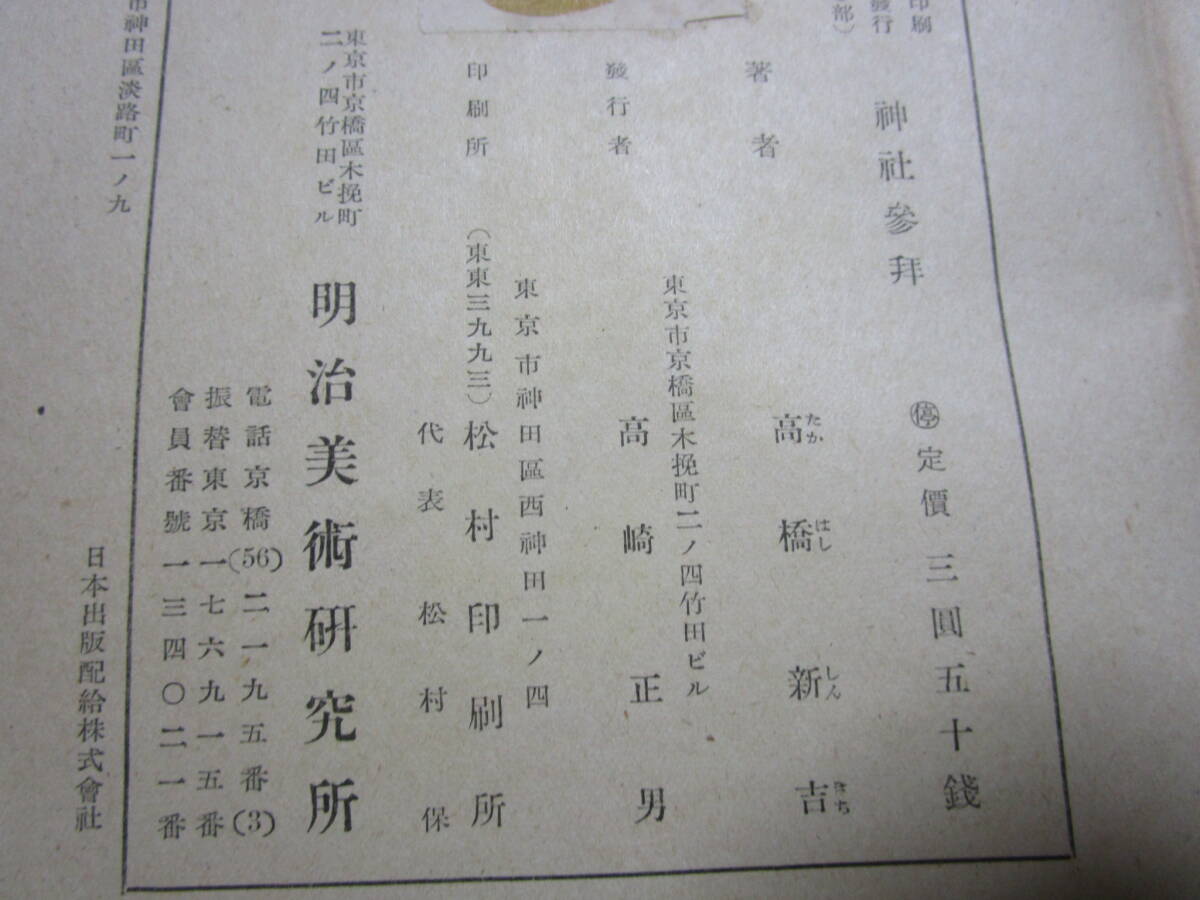 印刷
發行
部)
神社參拜
停 定價 三圓五十錢
著者
高橋新吉
たか はし しん きち
東京市京橋區木挽町二ノ四竹田ビル
發行者
高崎正男
東京市神田區西神田一ノ四
印刷所
(東東三九九三)松村印刷所
代表 松村保
東京市京橋區木挽町
二ノ四竹田ビル
明治美術研究所
電話京橋(56)二一九五番(3)
振替東京一七六九一五番
會員番號一三四〇二一番
市神田區淡路町一ノ九
日本出版配給株式會社